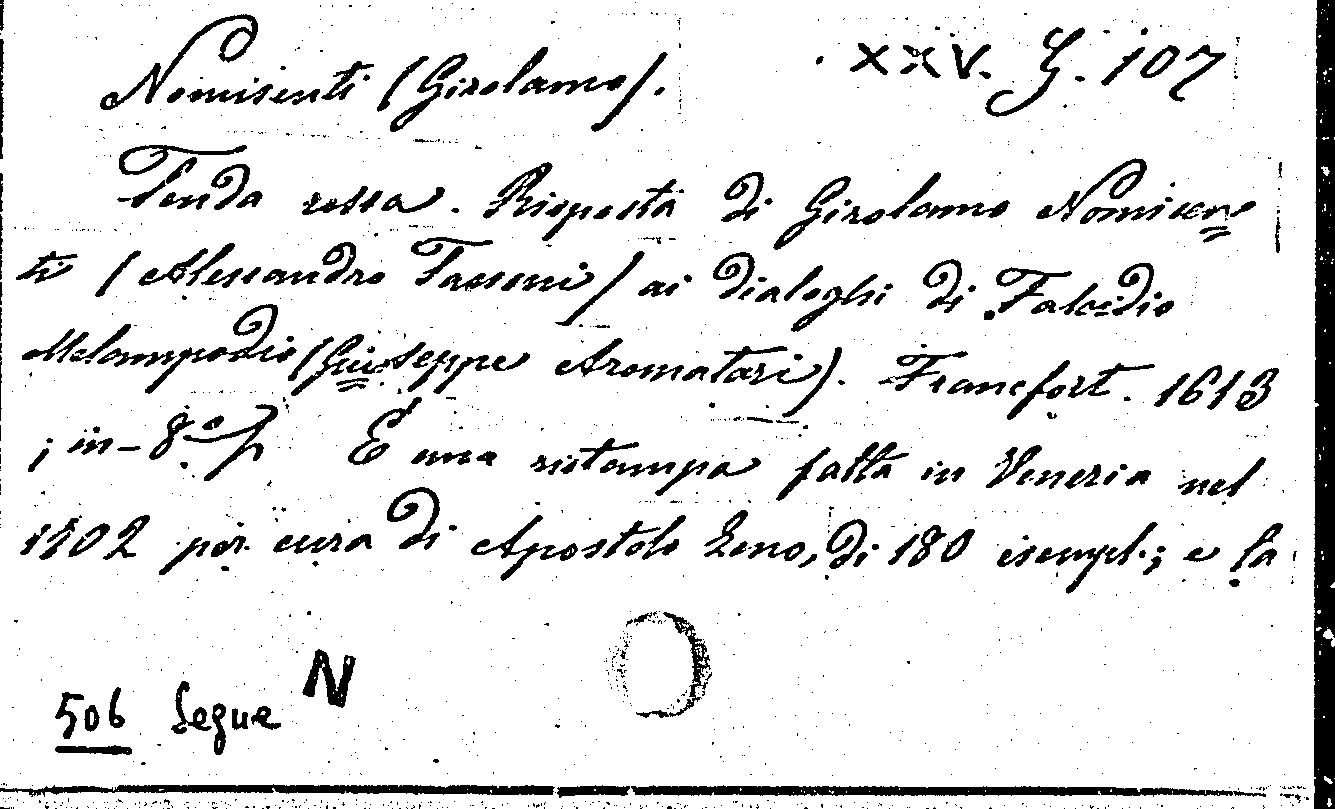 Nomisenti (Girolamo). XXV. G. 107
Tenda rossa. Risposta di Girolamo Nomisen=
ti (Alessandro Tassoni) ai dialoghi di Falcidio
Melampodio (Giuseppe Aromatari). Francfort. 1613
; in-8º È una ristampa fatta in Venezia nel
1702 per cura di Apostolo Zeno, di 180 esempl.; e la
506 Segue N